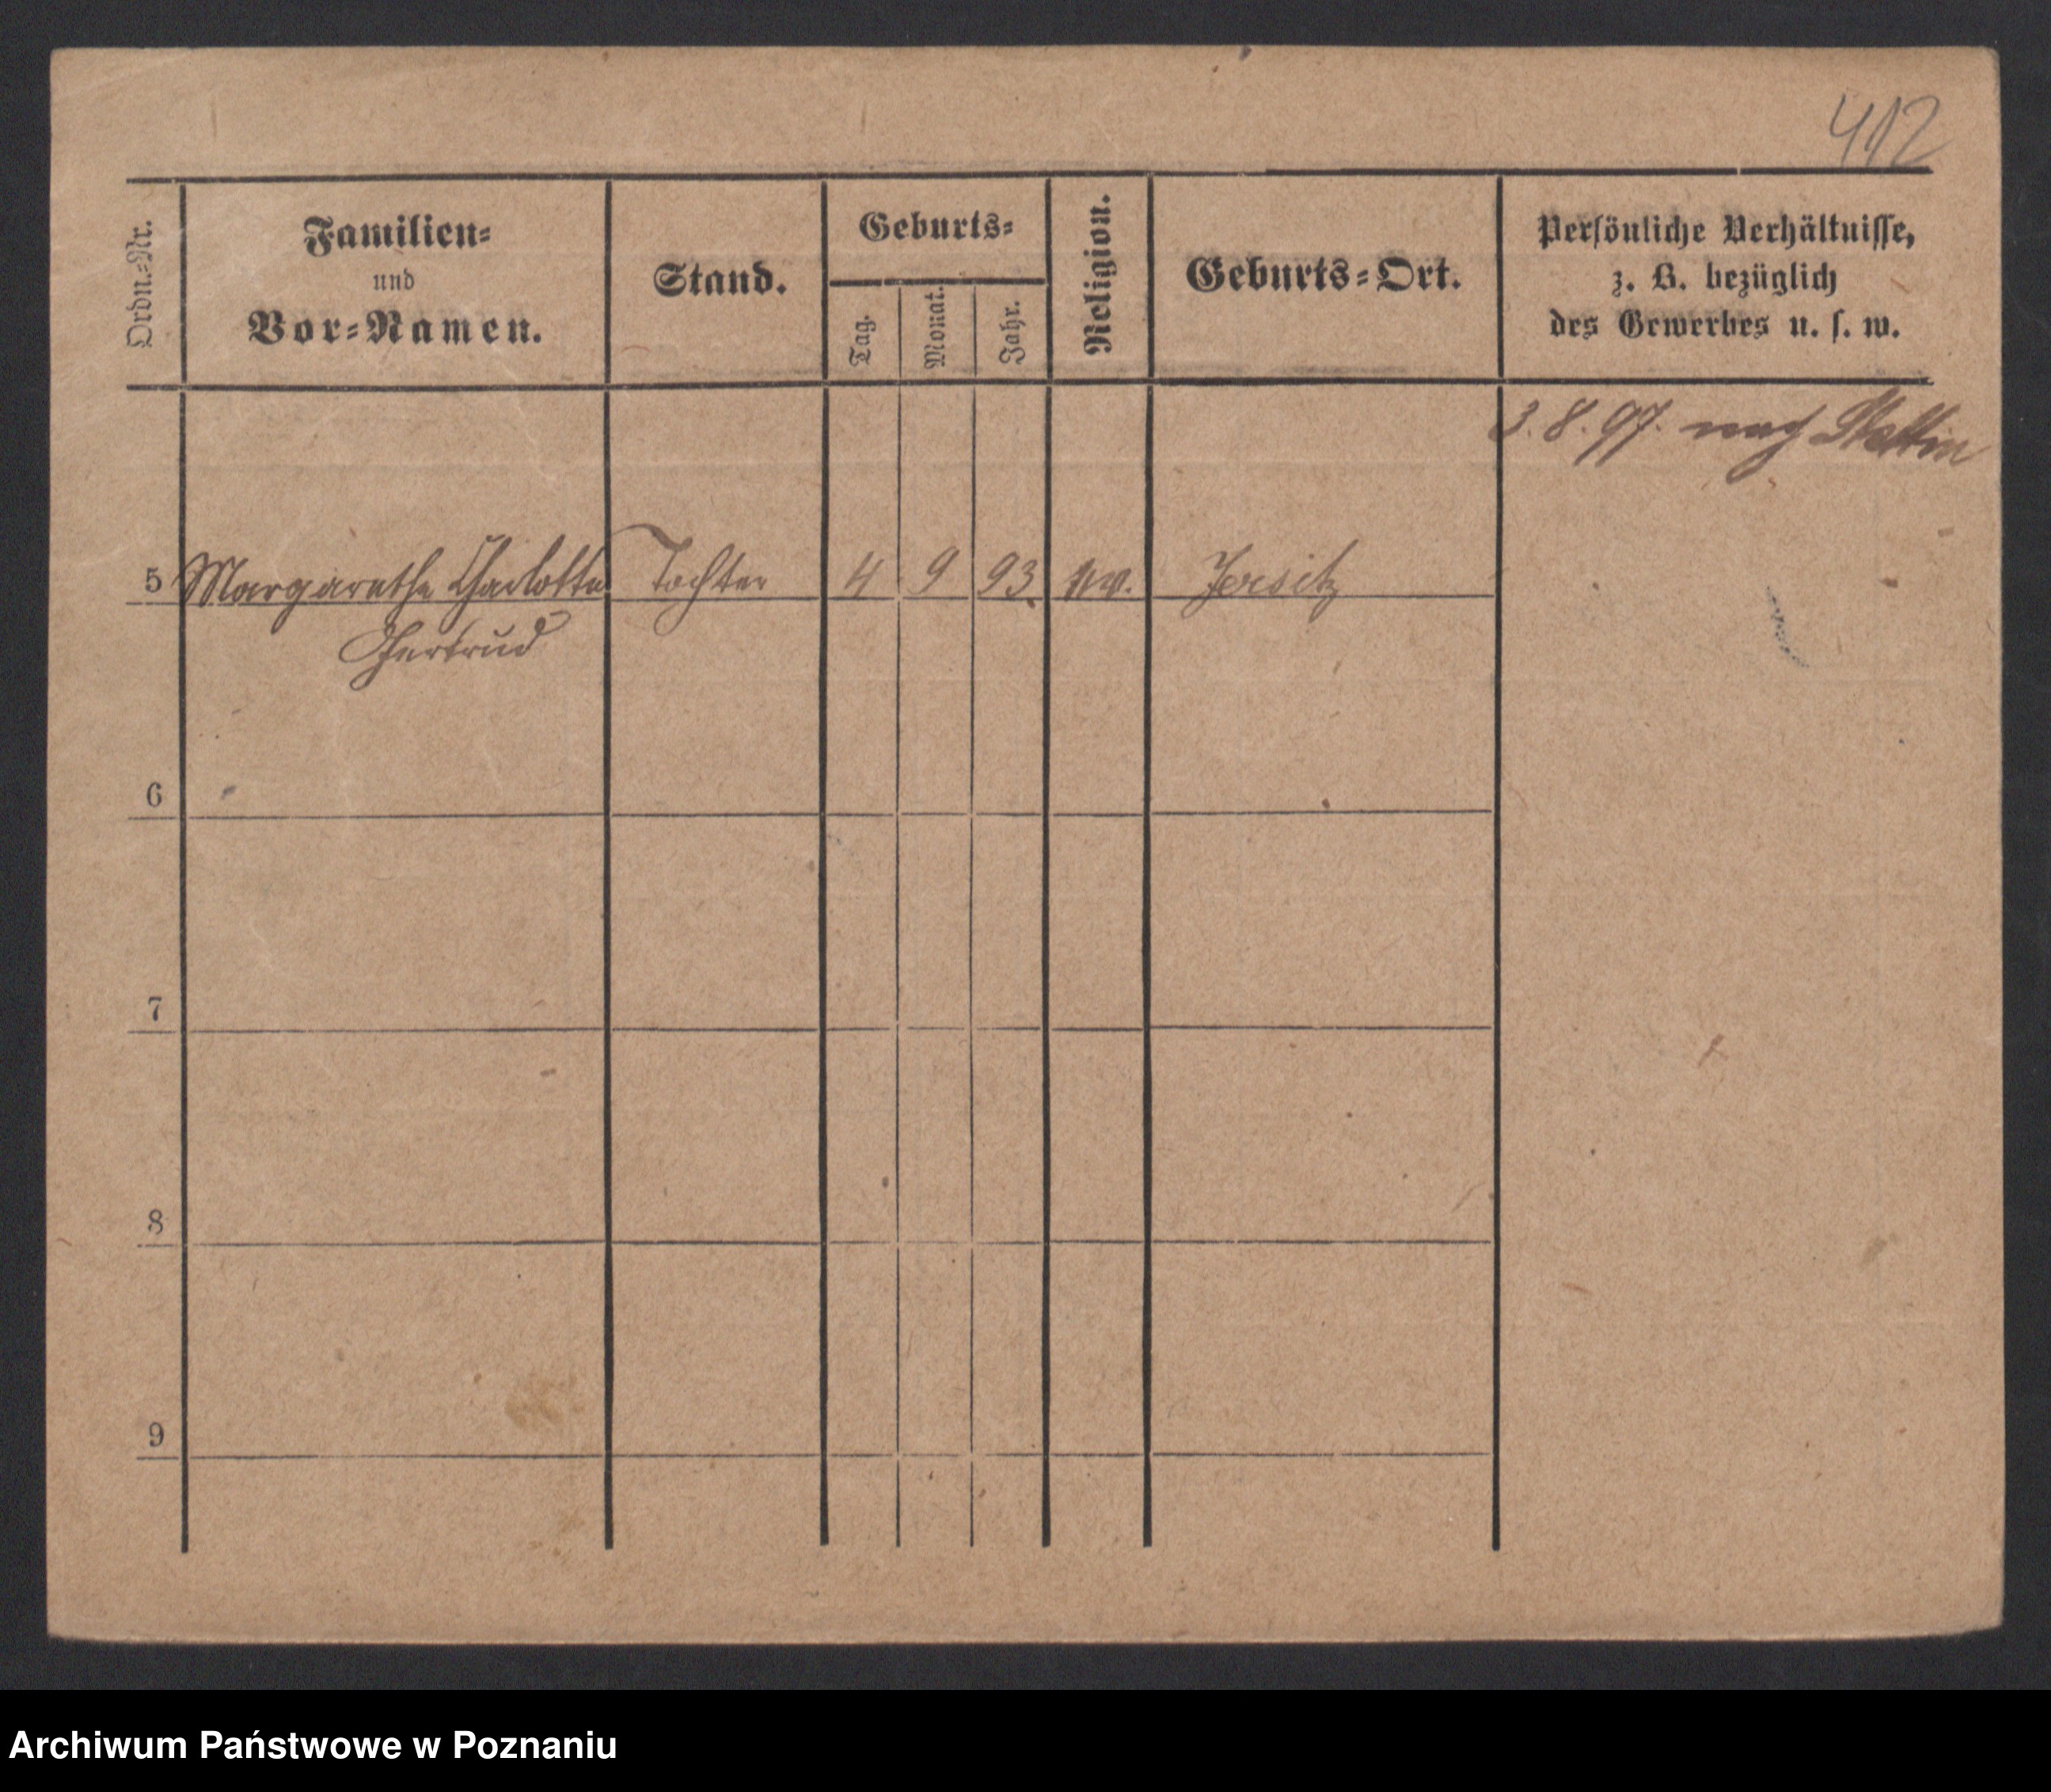 412
Ordn.=Nr.
Familien=
und
Vor=Namen.
Stand.
Geburts=
Tag.
Monat.
Jahr.
Religion.
Geburts=Ort.
Persönliche Verhältnisse,
z. B. bezüglich
des Gewerbes u. s. w.
3. 8. 97. nach Stettin
5 Margarethe Charlotte Tochter 4 9 93. ev. Jersitz
Gertrud
6
7
8
9
Archiwum Państwowe w Poznaniu